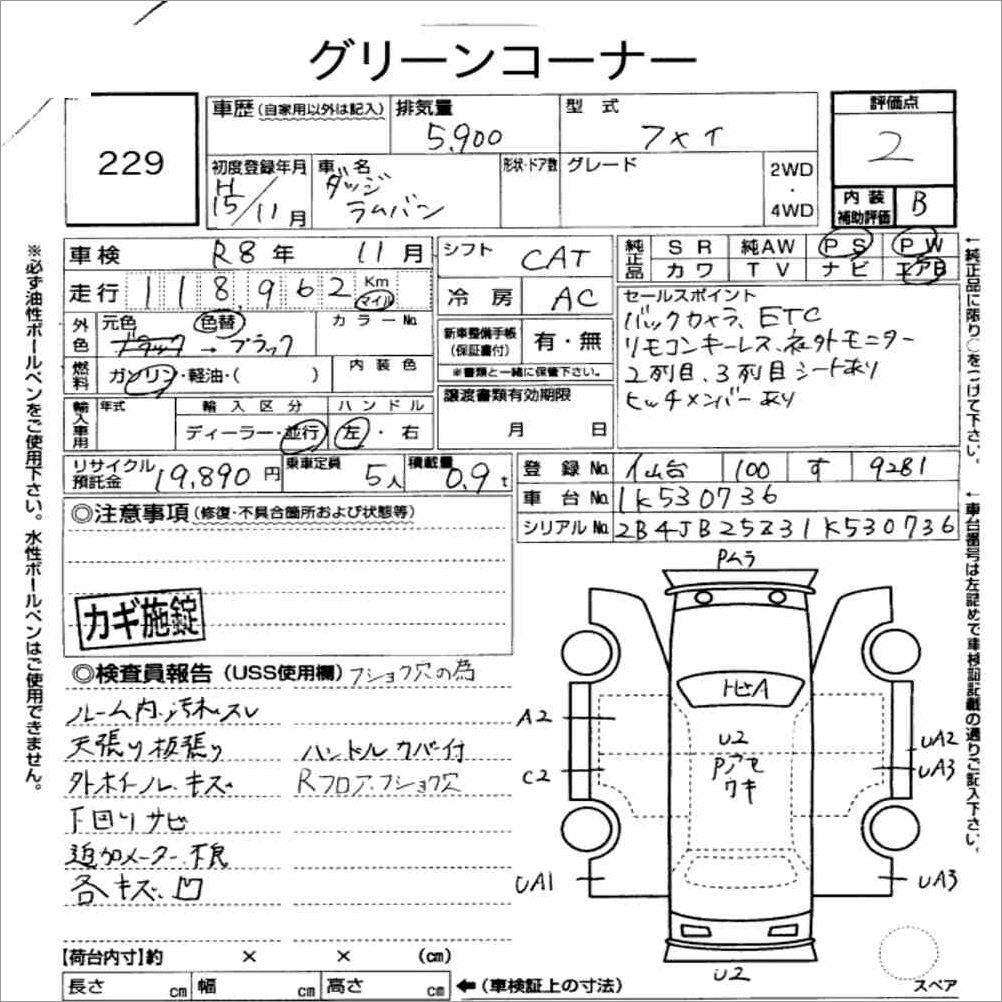 グリーンコーナー
229
車歴 (自家用以外は記入)
排気量
5,900
型式
フメイ
評価点
2
内装補助評価
B
初度登録年月
H15/11月
車名
ダッジ
ラムバン
形状・ドア数
グレード
2WD
・
4WD
車検 R8年 11月
走行 118,962 Km マイル
外色
元色 色替 カラーNo.
ブラック→ブラック
燃料
ガソリン・軽油・( )
内装色
輸入車用
年式
輸入区分
ハンドル
ディーラー・並行
左・右
シフト CAT
冷房 AC
新車整備手帳
(保証書付)
有・無
※書類と一緒に保管下さい。
譲渡書類有効期限
月 日
純正品
SR 純AW PS PW
カワ TV ナビ エアB
セールスポイント
バックカメラ、ETC
リモコンキーレス、社外モニター
2列目、3列目シートあり
ヒッチメンバーあり
リサイクル預託金 19,890円
乗車定員 5人
積載量 0.9t
登録No. 仙台 100 す 9281
車台No. 1K530736
シリアルNo. 2B4JB25Z31K530736
◎注意事項 (修復・不具合箇所および状態等)
カギ施錠
◎検査員報告 (USS使用欄) フショク穴の為
ルーム内、汚れ、スレ
天張り板張り
ハンドルカバー付
外ホイール、キズ
Rフロア、フショク穴
下回りサビ
追加メーター、不良
各キズ、凹
Pムラ
トビA
A2
U2
Pアセ
ワキ
C2
UA2
UA3
UA1
UA3
U2
スペア
【荷台内寸】約 × × (cm)
長さ cm 幅 cm 高さ cm
←(車検証上の寸法)
※必ず油性ボールペンをご使用下さい。水性ボールペンはご使用できません。
←純正品に限り○をつけて下さい。
←車台番号は左詰めで車検証記載の通りご記入下さい。